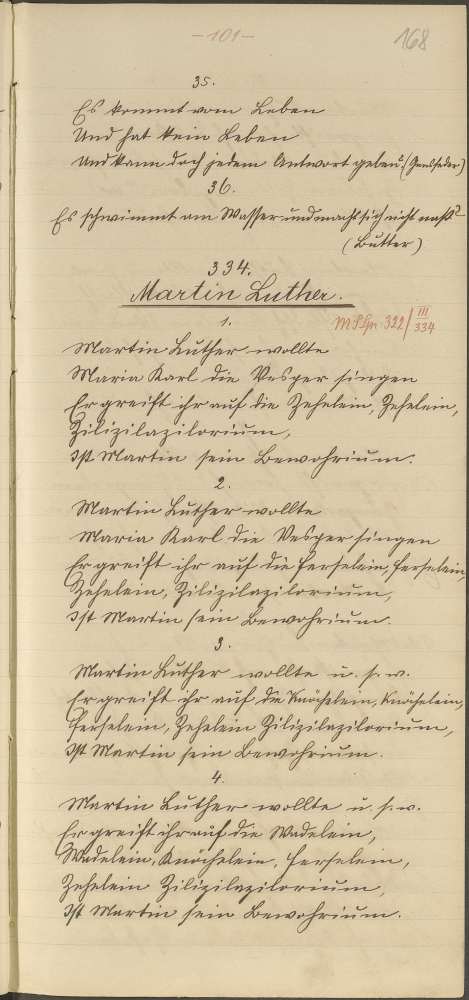 -101-
168
35.
Es kommt vom Leben
Und hat kein Leben
Und kann doch jedem Antwort geben. (Gansfeder)
36.
Es schwimmt am Wasser und macht sich nicht naß?
(Butter)
334.
Martin Luther.
322/III 334
1.
Martin Luther wollte
Maria Karl die Vesper singen
Er greift ihr auf die Zehelein, Zehelein,
Zilizilazilorium,
Ist Martin sein Bewohrium.
2.
Martin Luther wollte
Maria Karl die Vesper singen
Er greift ihr auf die Ferselein, Ferselein,
Zehelein, Zilizilazilorium,
Ist Martin sein Bewohrium.
3.
Martin Luther wollte u. s. w.
Er greift ihr auf die Knöchelein, Knöchelein,
Ferselein, Zehelein Zilizilazilorium,
Ist Martin sein Bewohrium.
4.
Martin Luther wollte u. s. w.
Er greift ihr auf die Wadelein,
Wadelein, Knöchelein, Ferselein,
Zehelein Zilizilazilorium,
Ist Martin sein Bewohrium.